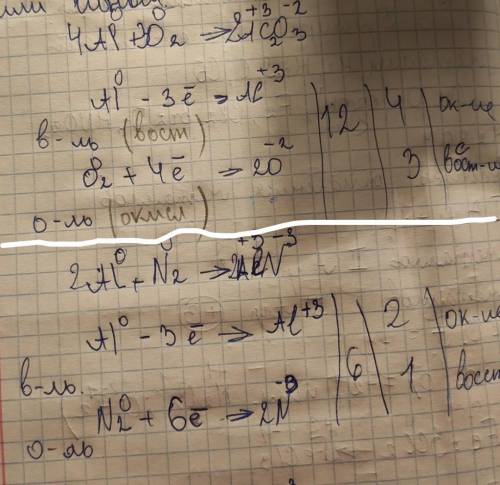 4Al + 3O2 → 2Al2O3 +3 -2
Al0 - 3ē → Al+3 | 12 | 4 | ок-ие
в-ль (вост)
O2 + 4ē → 2O-2 | 3 | вост-
о-ль (окисл)
2Al0 + N20 → 2AlN +3 -3
Al0 - 3ē → Al+3 | 6 | 2 | ок-ие
в-ль.
N20 + 6ē → 2N-3 | 1 | восст
о-ль